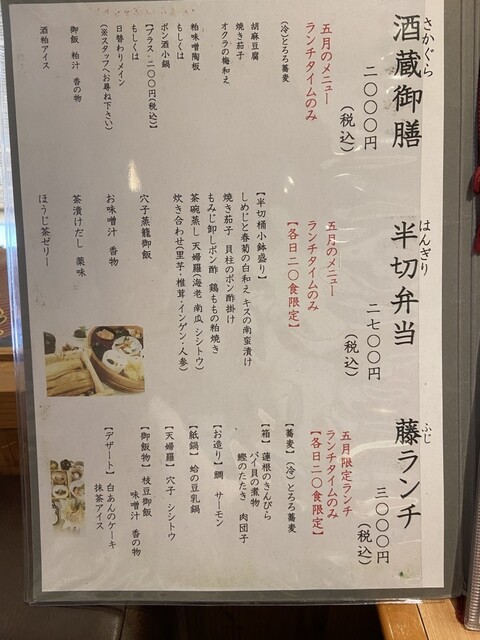 さかぐら
酒蔵御膳
二〇〇〇円
(税込)
五月のメニュー
ランチタイムのみ
(冷)とろろ蕎麦
胡麻豆腐
焼き茄子
オクラの梅和え
粕味噌陶板
もしくは
ポン酒小鍋
【プラス二〇〇円(税込)】
もしくは
日替わりメイン
(※スタッフへお尋ね下さい)
御飯 粕汁 香の物
酒粕アイス
はんぎり
半切弁当
二七〇〇円
(税込)
五月のメニュー
ランチタイムのみ
【各日二〇食限定】
【半切桶小鉢盛り】
しめじと春菊の白和え キスの南蛮漬け
焼き茄子 貝柱のポン酢掛け
もみじ卸しポン酢 鶏ももの粕焼き
茶碗蒸し 天婦羅(海老 南瓜 シシトウ)
炊き合わせ(里芋・椎茸・インゲン・人参)
穴子蒸籠御飯
お味噌汁 香物
茶漬けだし 薬味
ほうじ茶ゼリー
ふじ
藤ランチ
三〇〇〇円
(税込)
五月限定ランチ
ランチタイムのみ
【各日二〇食限定】
【蕎麦】(冷)とろろ蕎麦
【箱】蓮根のきんぴら
バイ貝の煮物
鰹のたたき 肉団子
【お造り】鯛 サーモン
【紙鍋】蛤の豆乳鍋
【天婦羅】穴子 シシトウ
【御飯物】枝豆御飯
味噌汁 香の物
【デザート】白あんのケーキ
抹茶アイス